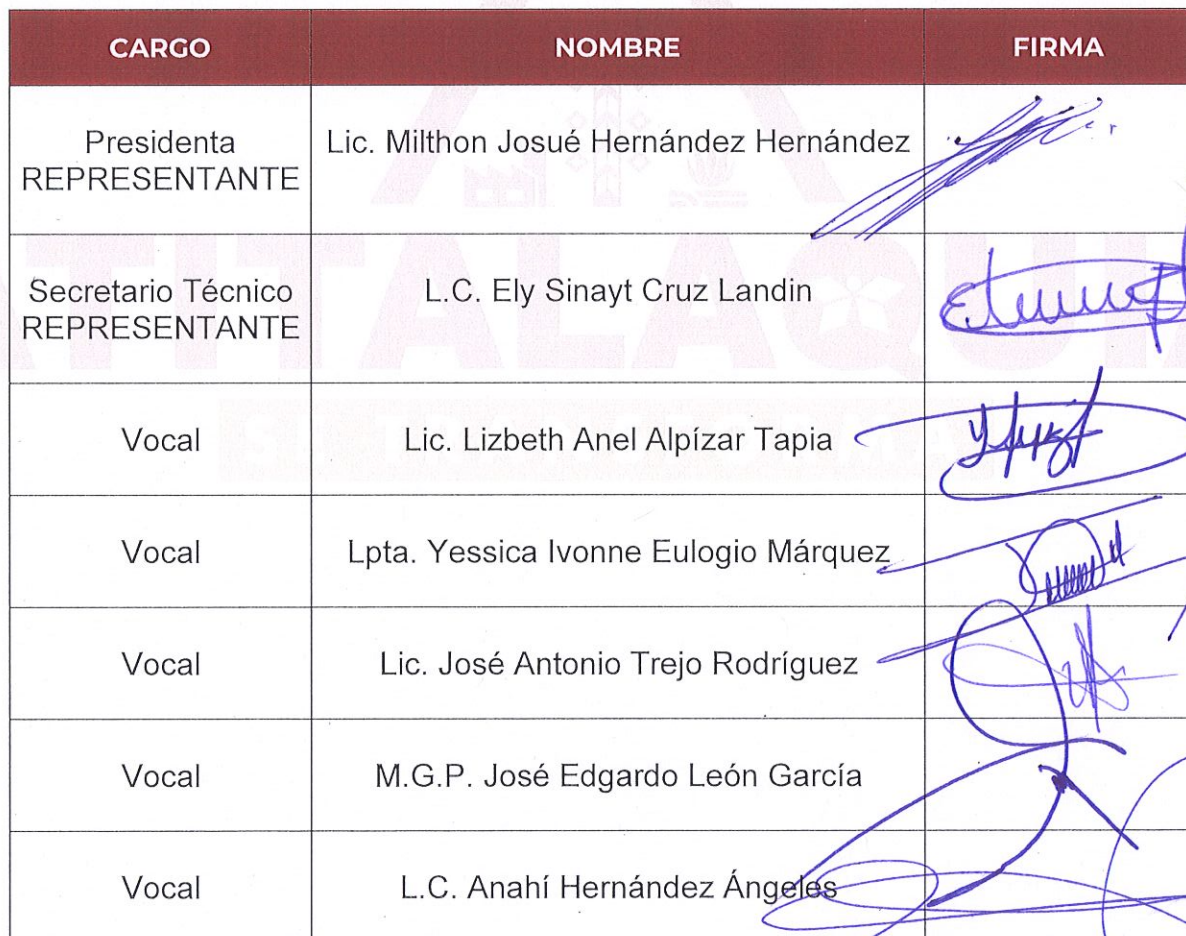 CARGO NOMBRE FIRMA
Presidenta
REPRESENTANTE
Lic. Milthon Josué Hernández Hernández
Secretario Técnico
REPRESENTANTE
L.C. Ely Sinayt Cruz Landin
ATITALAQUIA
Vocal Lic. Lizbeth Anel Alpízar Tapia
Vocal Lpta. Yessica Ivonne Eulogio Márquez
Vocal Lic. José Antonio Trejo Rodríguez
Vocal M.G.P. José Edgardo León García
Vocal L.C. Anahí Hernández Ángeles